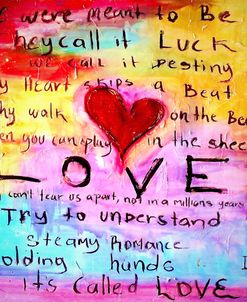 e were meant to Be
heycall it Luck
we call it Destiny
y Heart skips a Beat
hy walk on the Bea
en you can play in the shee
LOVE
can't tear us apart, not in a millions years
Try to understand
Steamy Romance
olding hands I
it's called LOVE